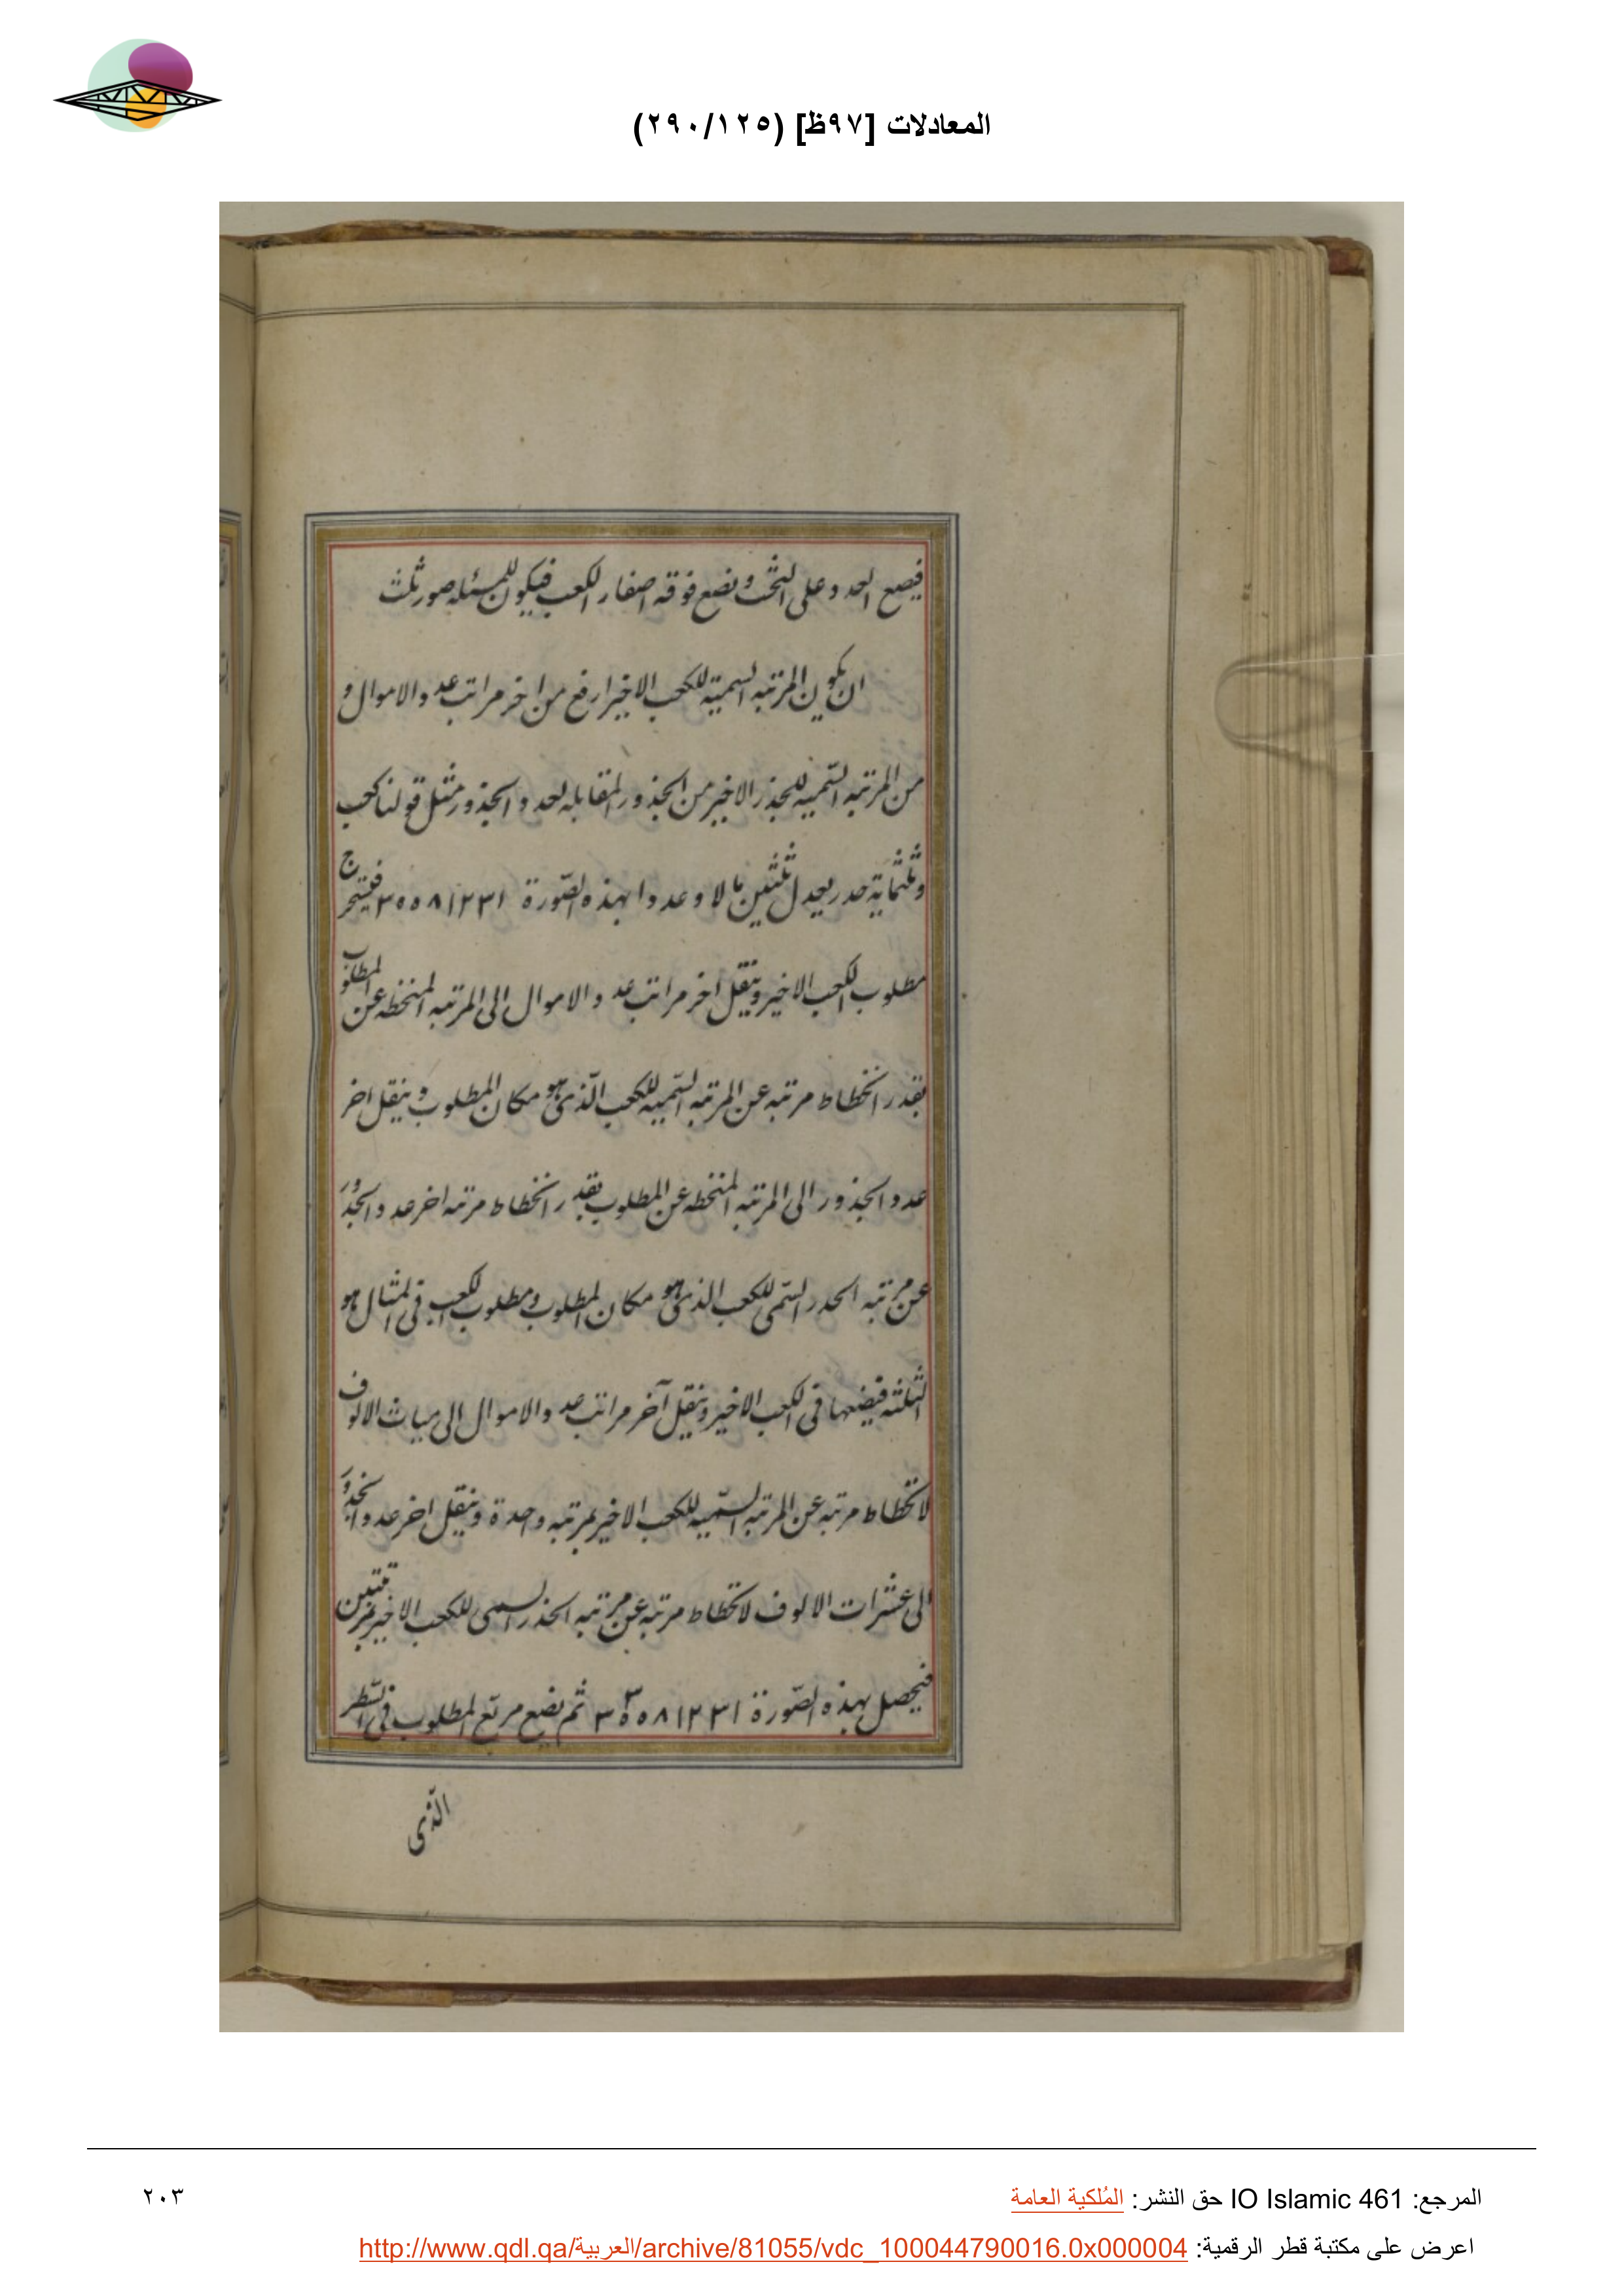 المعادلات [٩٧ظ] (٢٩٠/١٢٥)
فيصع العدد على التخت ونضع فوقه اصفار الكعب فيكون للمسئله صور ثلث
ان يكون المرتبه السمية للكعب الاخير ارفع من اخر مراتب عدد الاموال و
من المرتبه السميه للجذر الاخير من الجذور المقابله لعدد الجذور مثل قولنا كعب
وثلثماية جذر يعدل ثلثين مالا وعددا بهذه الصورة ٣٥٥٨١٢٣١ فيستخرج
مطلوب الكعب الاخير وينقل اخر مراتب عدد الاموال الى المرتبه المنخطه عن المطلوب
بقدر انخطاط مرتبه عن المرتبه السميه للكعب الذى هو مكان المطلوب وينقل اخر
عدد الجذور الى المرتبه المنخطه عن المطلوب بقدر انخطاط مرتبه اخر عدد الجذور
عن مرتبه الجذر السمى للكعب الذى هو مكان المطلوب ومطلوب الكعب فى المثال هو
الثلثه فيضعها فى الكعب الاخير وينقل آخر مراتب عدد الاموال الى ميات الالوف
لانخطاط مرتبه عن المرتبه السميه للكعب الاخير بمرتبه واحدة وينقل اخر عدد الجذور
الى عشرات الالوف لانخطاط مرتبه عن مرتبه الجذر السمى للكعب الاخير بمرتبتين
فيحصل بهذه الصورة ٣٥٥٨١٢٣١ ٣ ثم يضع مربع المطلوب فى السطر
الذى
المرجع: IO Islamic 461 حق النشر: المُلكية العامة
٢٠٣
اعرض على مكتبة قطر الرقمية: http://www.qdl.qa/العربية/archive/81055/vdc_100044790016.0x000004